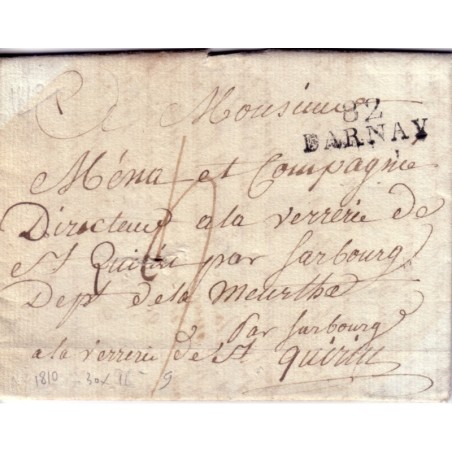 A Monsieur
82
DARNAY
Ména et Compagnie
Directeur a la verrerie de
St Quirin par Sarbourg
Dept de la Meurthe
Par Sarbourg
a la verrerie de St Quirin
1810 30x16 9